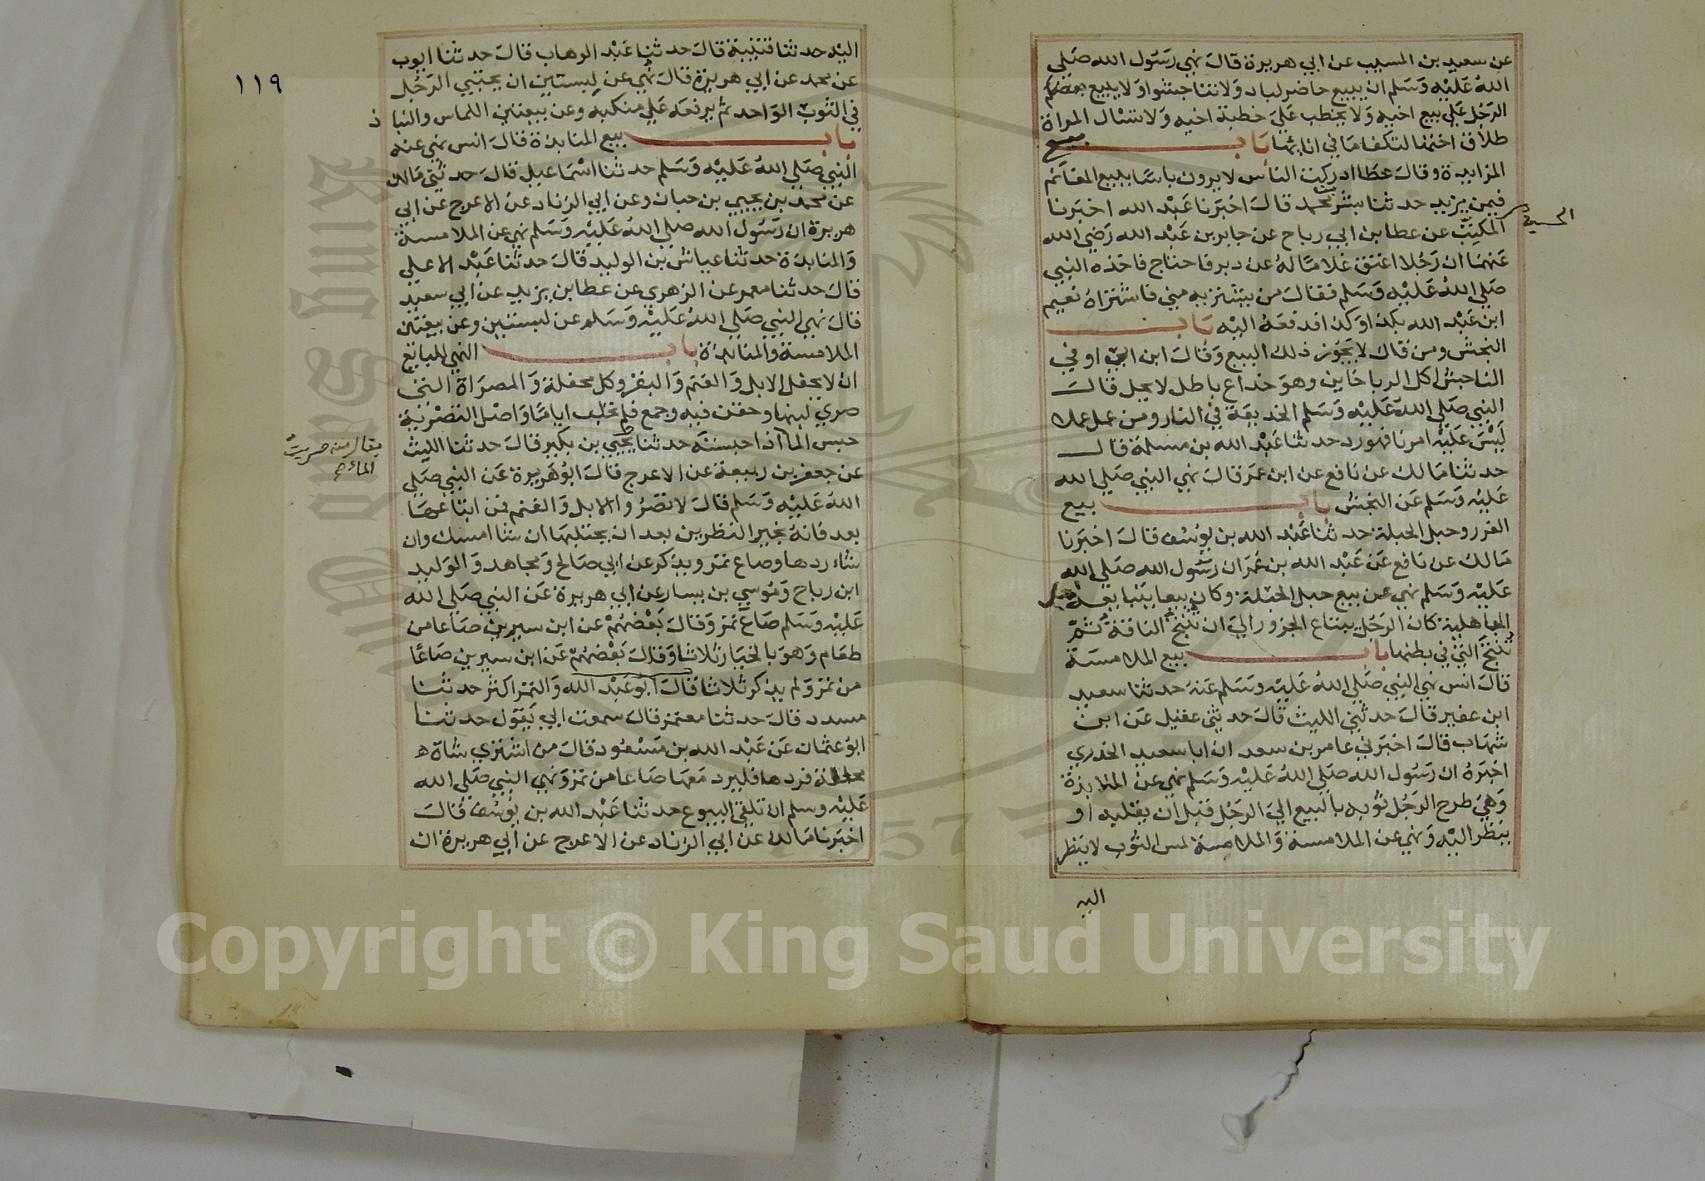 عن سعيد بن المسيب عن ابي هريرة قال نهي رسول الله صلي
الله عليه وسلم ان يبيع حاضر لباد ولا تناجشوا ولا يبيع
الرجل علي بيع اخيه ولا يخطب علي خطبة اخيه ولا تسال المراة
طلاق اختها لتكفا ما في انائها باب بيع
المزايدة وقال عطا ادركت الناس لا يرون باسا ببيع المغانم
فيمن يزيد حدثنا بشر بن محمد قال اخبرنا عبد الله اخبرنا
الحسين
المكتب عن عطا بن ابي رباح عن جابر بن عبد الله رضي الله
عنهما ان رجلا اعتق غلاما له عن دبر فاحتاج فاخذه النبي
صلي الله عليه وسلم فقال من يشتريه مني فاشتراه نعيم
ابن عبد الله بكذا وكذا فدفعه اليه باب
النجش ومن قال لا يجوز ذلك البيع وقال ابن ابي اوفي
الناجش اكل الربا خاين وهو خداع باطل لا يحل قال
النبي صلي الله عليه وسلم الخديعة في النار ومن عمل عملا
ليس عليه امرنا فهو رد حدثنا عبد الله بن مسلمة قال
حدثنا مالك عن نافع عن ابن عمر قال نهي النبي صلي الله
عليه وسلم عن النجش باب بيع
الغرر وحبل الحبلة حدثنا عبد الله بن يوسف قال اخبرنا
مالك عن نافع عن عبد الله بن عمر ان رسول الله صلي الله
عليه وسلم نهي عن بيع حبل الحبلة وكان بيعا يتبايعه اهل
الجاهلية كان الرجل يبتاع الجزور الي ان تنتج الناقة ثم
تنتج التي في بطنها باب بيع الملامسة
قال انس نهي النبي صلي الله عليه وسلم عنه حدثنا سعيد
ابن عفير قال حدثني الليث قال حدثني عقيل عن ابن
شهاب قال اخبرني عامر بن سعد ان ابا سعيد الخدري
اخبره ان رسول الله صلي الله عليه وسلم نهي عن المنابذة
وهي طرح الرجل ثوبه بالبيع الي الرجل قبل ان يقلبه او
ينظر اليه ونهي عن الملامسة والملامسة لمس الثوب لا ينظر
اليه
١١٩
اليه حدثنا قتيبة قال حدثنا عبد الوهاب قال حدثنا ايوب
عن محمد عن ابي هريرة قال نهي عن لبستين ان يحتبي الرجل
في الثوب الواحد ثم يرفعه علي منكبه وعن بيعتين اللماس والنباذ
باب بيع المنابذة وقال انس نهي عنه
النبي صلي الله عليه وسلم حدثنا اسماعيل قال حدثني مالك
عن محمد بن يحيي بن حبان وعن ابي الزناد عن الاعرج عن ابي
هريرة ان رسول الله صلي الله عليه وسلم نهي عن الملامسة
والمنابذة حدثنا عياش بن الوليد قال حدثنا عبد الاعلي
قال حدثنا معمر عن الزهري عن عطا بن يزيد عن ابي سعيد
قال نهي النبي صلي الله عليه وسلم عن لبستين وعن بيعتين
الملامسة والمنابذة باب النهي للبائع
ان لا يحفل الابل والغنم والبقر وكل محفلة والمصراة التي
صري لبنها وحقن فيه وجمع فلم تحلب اياما واصل التصرية
حبس الما
يقال منه صريت
الماء
اذا حبسته حدثنا يحيي بن بكير قال حدثنا الليث
عن جعفر بن ربيعة عن الاعرج قال ابو هريرة عن النبي صلي
الله عليه وسلم قال لا تصروا الابل والغنم فمن ابتاعها
بعد فانه بخير النظرين بعد ان يحتلبها ان شا امسك وان
شاء ردها وصاع تمر ويذكر عن ابي صالح ومجاهد والوليد
ابن رباح وموسي بن يسار عن ابي هريرة عن النبي صلي الله
عليه وسلم صاع تمر وقال بعضهم عن ابن سيرين صاعا من
طعام وهو بالخيار ثلاثا وقال بعضهم عن ابن سيرين صاعا
من تمر ولم يذكر ثلاثا قال ابو عبد الله والتمر اكثر حدثنا
مسدد قال حدثنا معتمر قال سمعت ابي يقول حدثنا
ابو عثمان عن عبد الله بن مسعود قال من اشتري شاة
محفلة فردها فليرد معها صاعا من تمر ونهي النبي صلي الله
عليه وسلم ان تلقي البيوع حدثنا عبد الله بن يوسف قال
اخبرنا مالك عن ابي الزناد عن الاعرج عن ابي هريرة ان
King Saud University
1957
Copyright © King Saud University